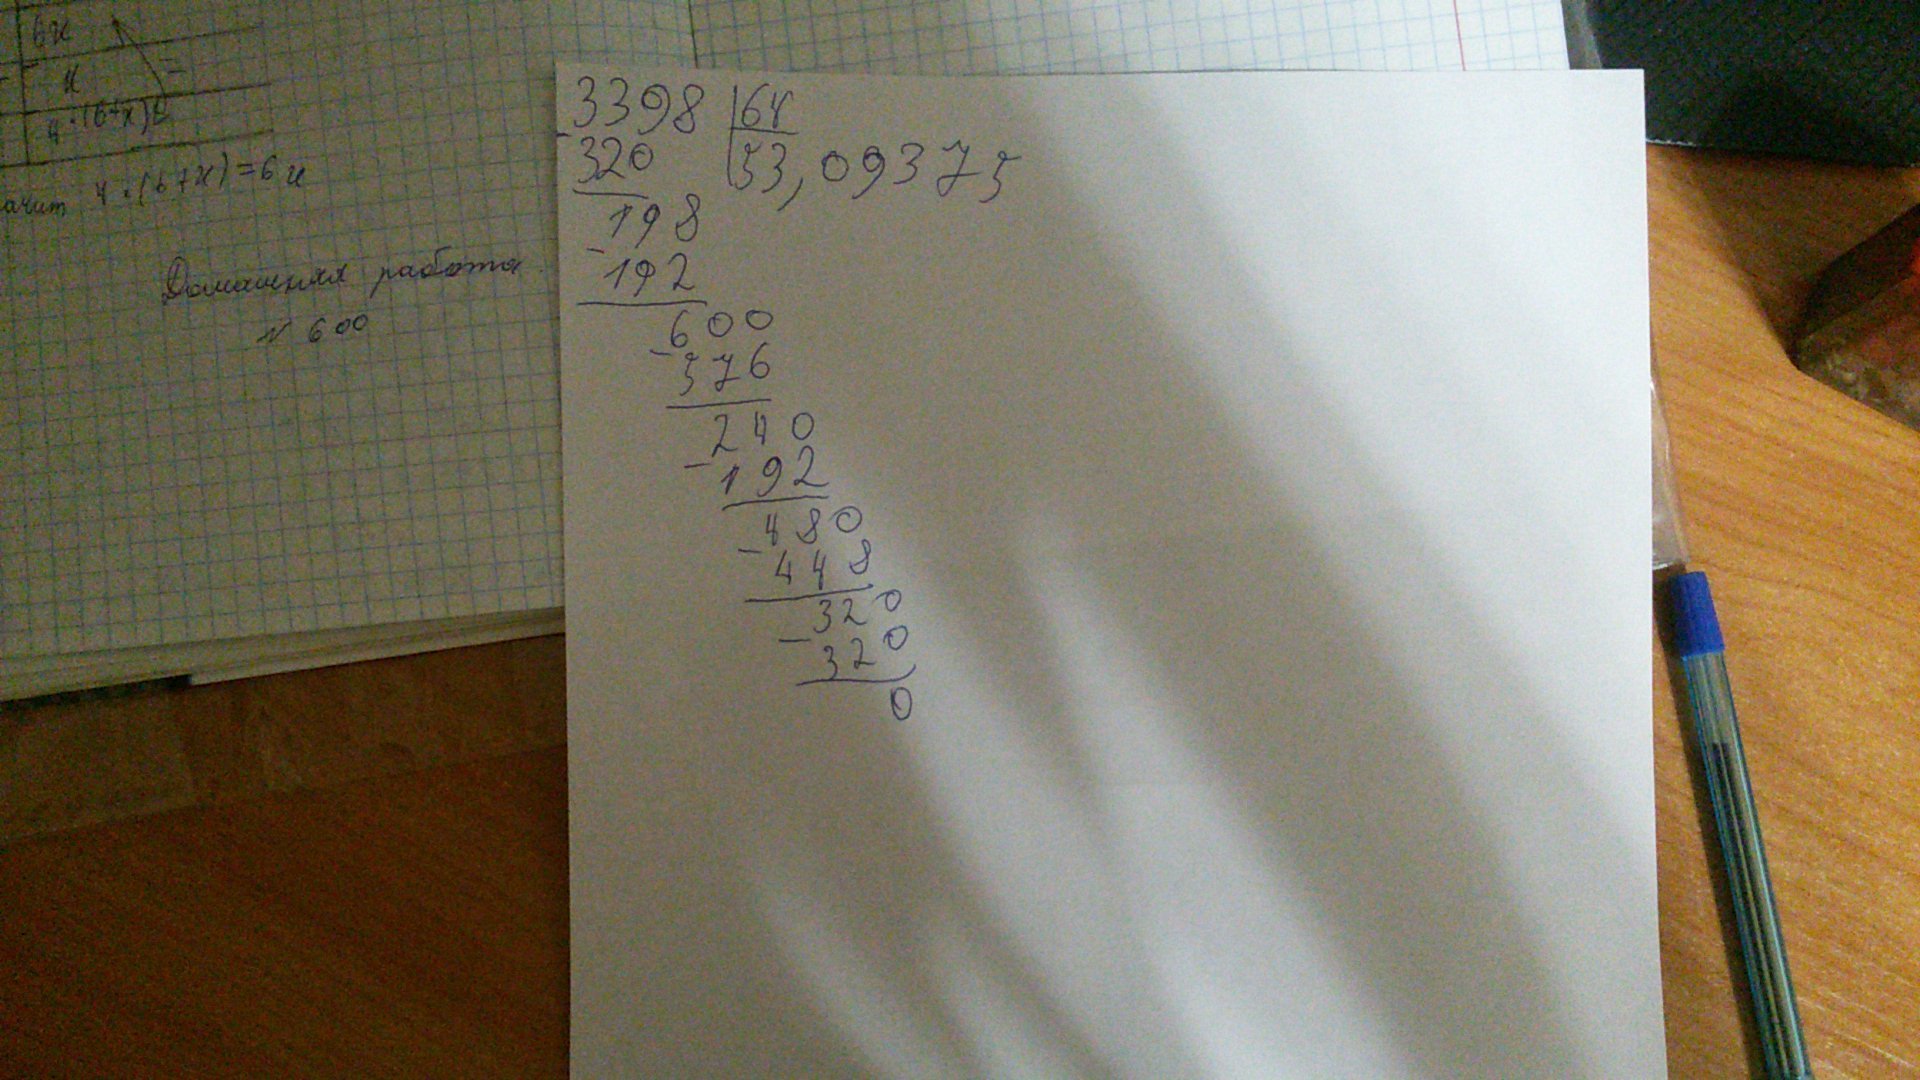 6x
x
4·(6+x)
4·(6+x)=6x
Домашняя работа
N 600
3398 64
- 320 53,09375
198
- 192
600
- 576
240
- 192
480
- 448
320
- 320
0